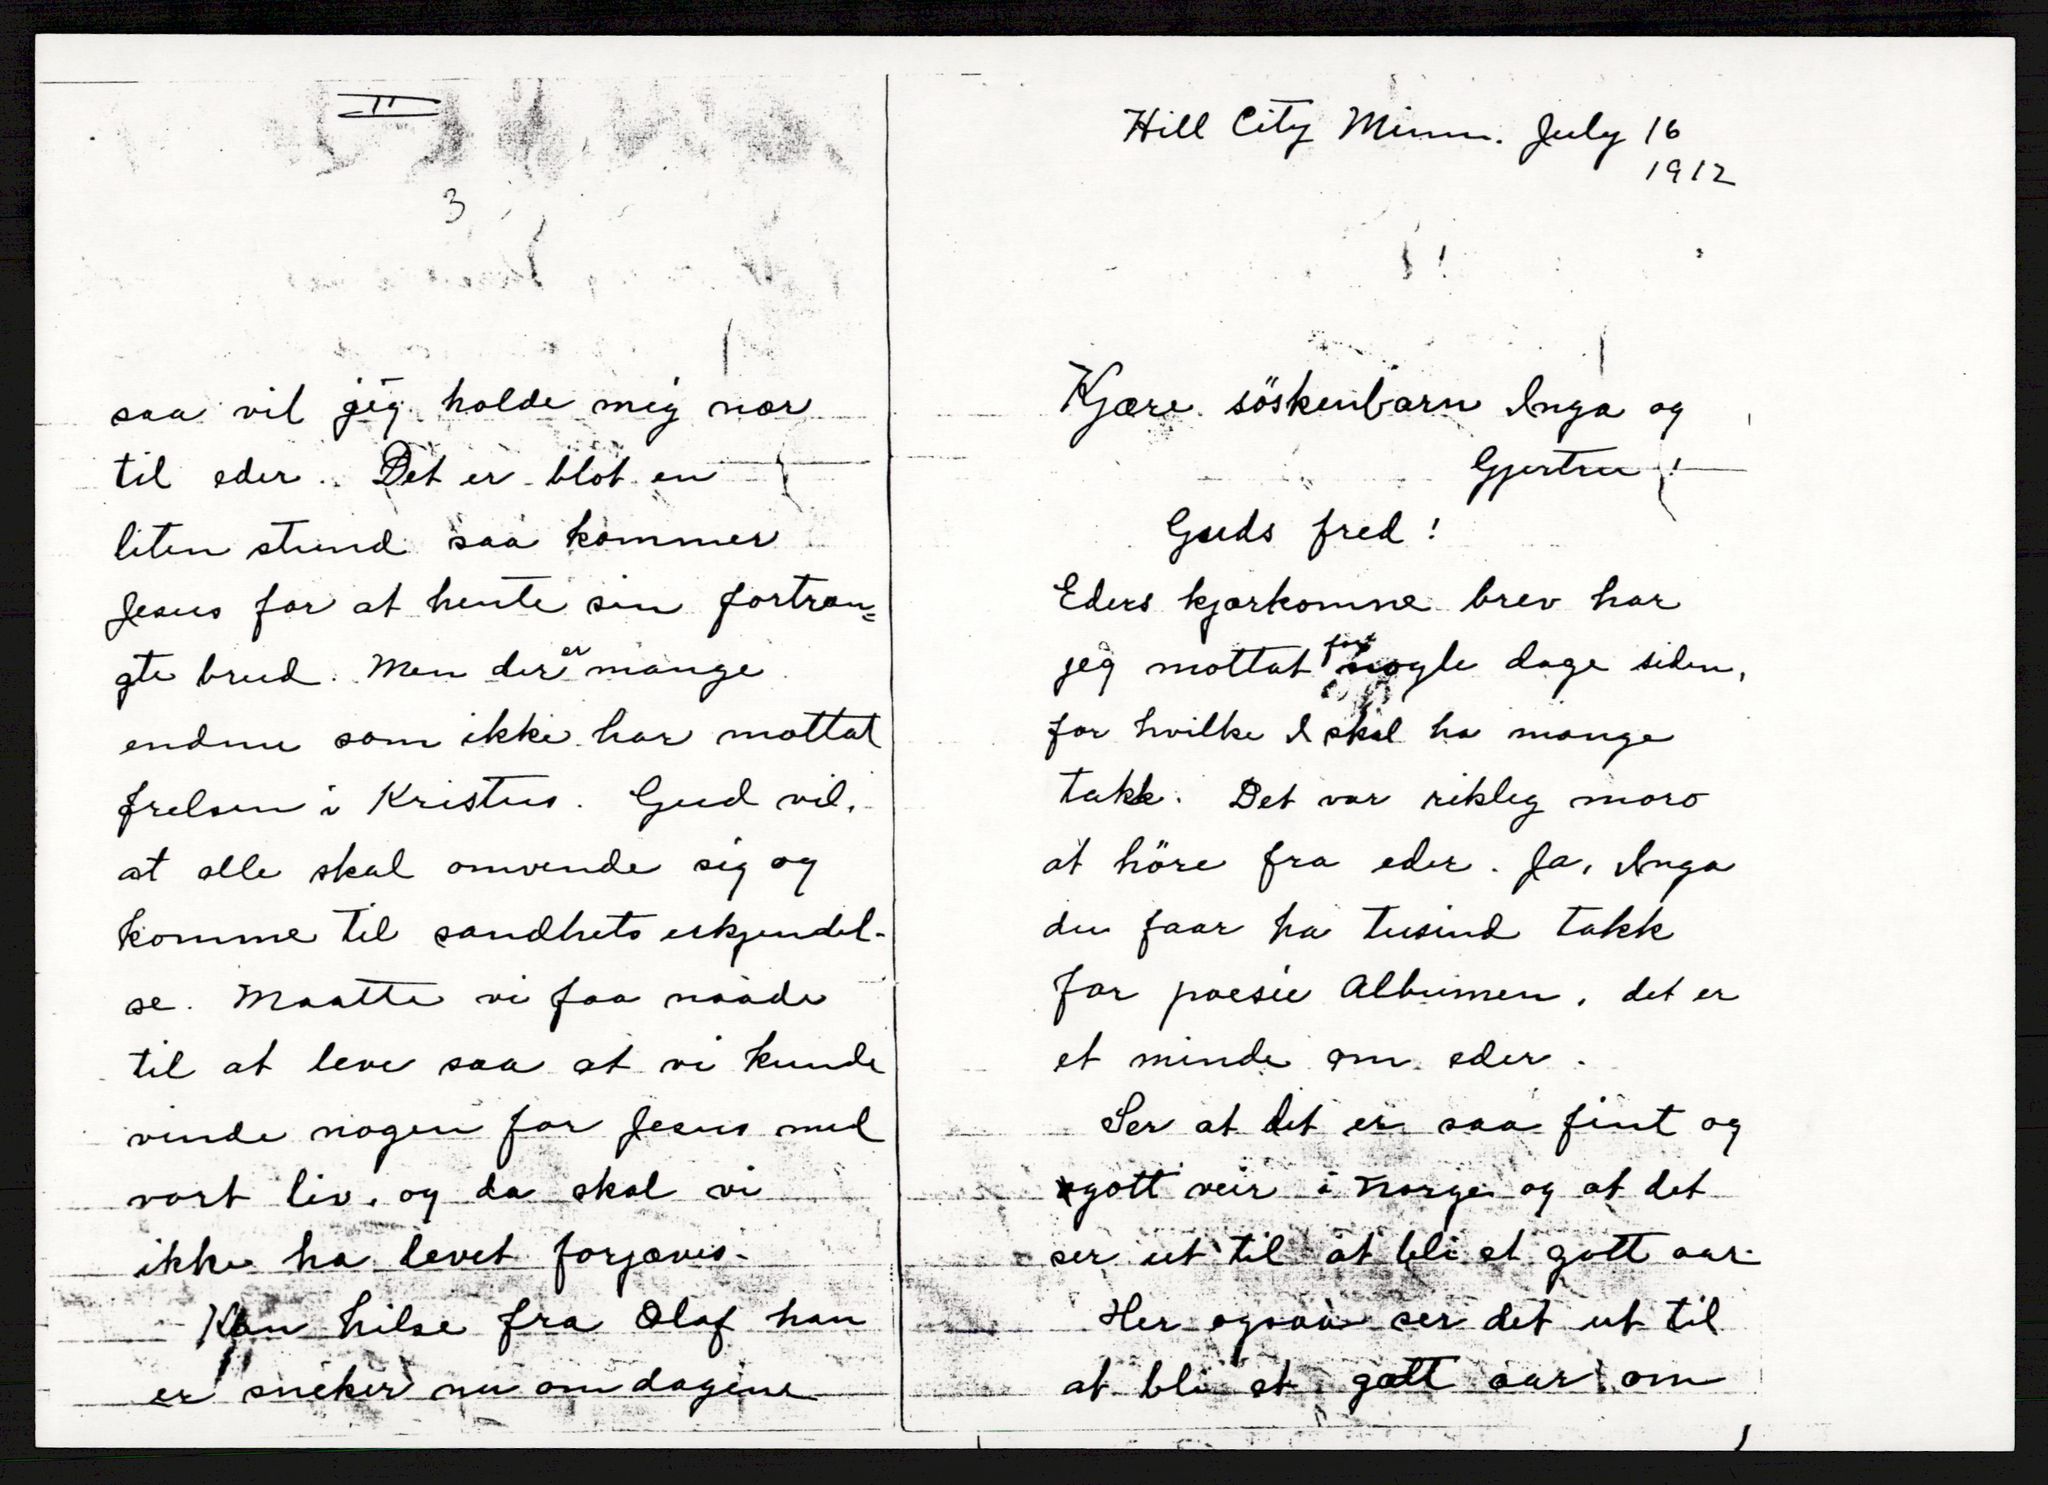 II
3
saa vil jeg holde mig nær
til eder. Det er blot en
liten stund saa kommer
Jesus for at hente sin fortræn=
gte brud. Men der er mange
endnu som ikke har mottat
frelsen i Kristus. Gud vil,
at alle skal omvende sig og
komme til sandhets erkjendel-
se. Maatte vi faa naade
til at leve saa at vi kunde
vinde nogen for Jesus med
vort liv, og da skal vi
ikke ha levet forjæves.
Kan hilse fra Olaf han
er sneker nu om dagene
Hill City Minn. July 16
1912
Kjære söskenbarn Inga og
Gjertru!
Guds fred!
Eders kjærkomne brev har
jeg mottat for nogle dage siden,
for hvilke I skal ha mange
takk. Det var riktig moro
at höre fra eder. Ja, Inga
du faar ha tusind takk
for poesie Albumen, det er
et minde om eder.
Ser at det er saa fint og
gott veir i Norge og at det
ser ut til at bli et gott aar.
Her ogsaa ser det ut til
at bli et gott aar om